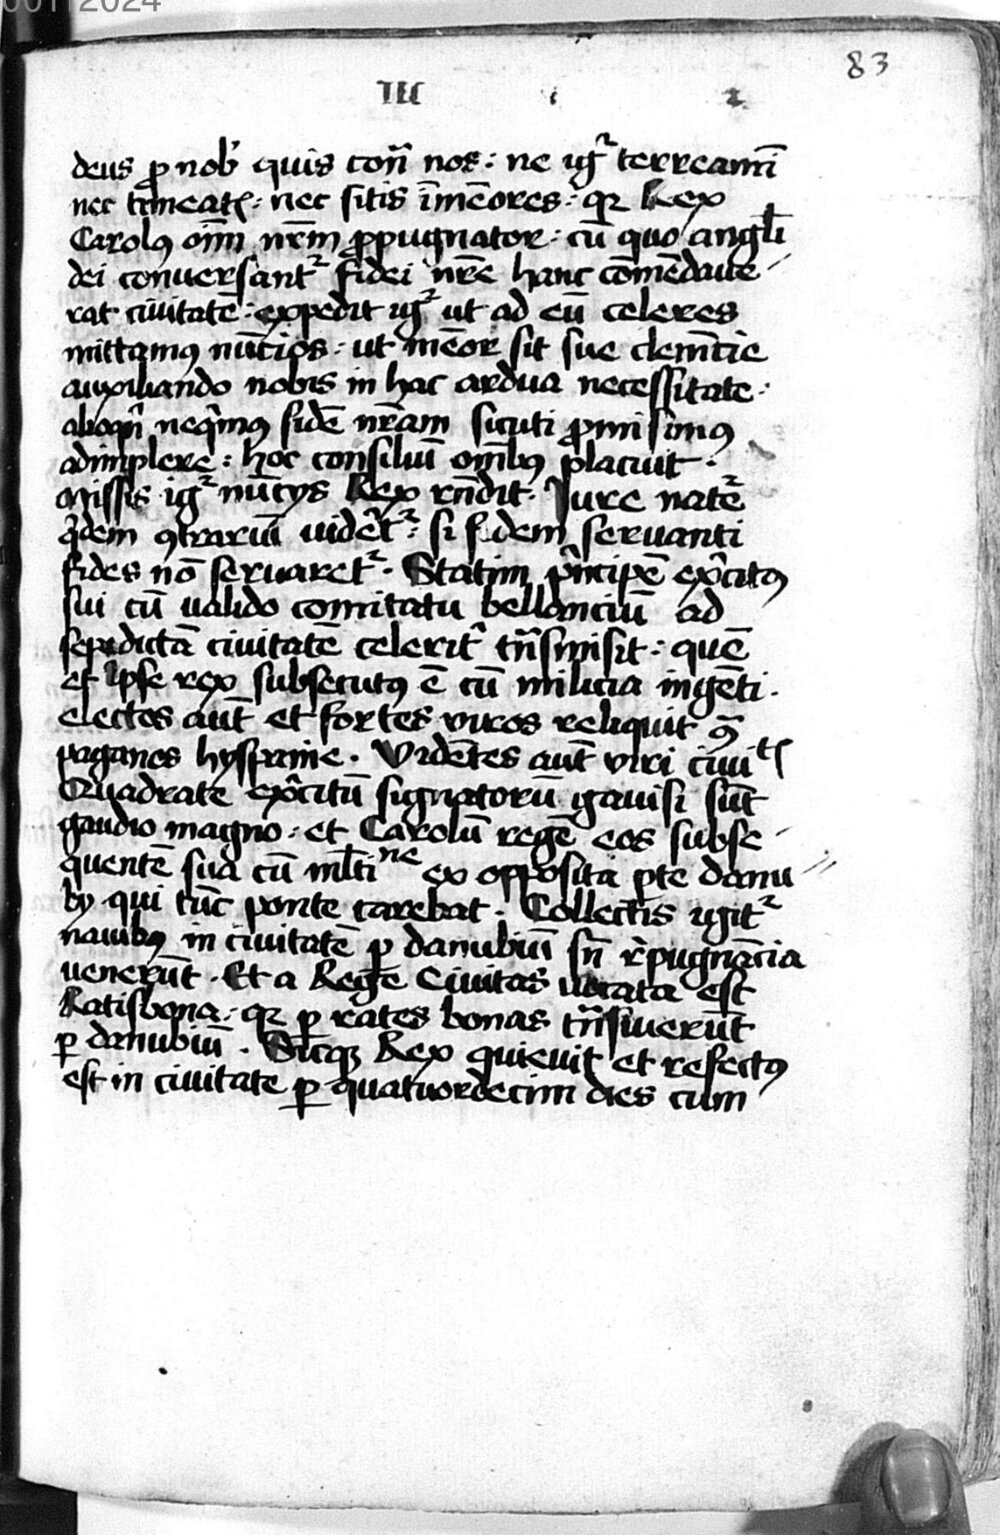 0011 2024
83
deus ꝑ nob̾ quis con̄ nos : ne igr̄ terreami̅
nec timeatꝭ : nec sitis īmēores : qꝛ Rex
Carolꝰ oim̄ nr̄m ꝓpugnator : cū quo angl̄i
dei conuersantᷣ fidei nr̄e hanc cōmēdaue
rat ciuitatē : expedit igᷣ ut ad eū celeres
mittamꝰ nūcios : ut mēor sit sue clemētie
auxiliando nobis in hac ardua necessitate :
alioqn̄ neqᷤmꝰ fidē nr̄am sicuti ꝓmisimꝰ
adimplere : hoc consiliū om̄ibꝰ placuit .
Missis igᷣ nūctys Rex rn̄dit . Jure natᷣe
qᷤdem ꝯtrariū uider̄etᷣ : si fidem seruanti
fides nō seruaretᷣ . Statim pᷤncipē exᷣcitꝰ
sui cū ualido comitatu bellanciū ad
sepedictā ciuitatē celeritᷣ tn̄smisit : quē
et ipse rex subsecutꝰ ē cū milicia ingēti .
electos aūt et fortes viros reliquit ꝯᷓ
paganos hyspanie . Videntes aūt viri ciuitꝭ
Quadrate exᷣcitū signatorū gauisi sūt
gaudio magno : et Carolū regē eos subse
quentē sua cū ml̄tine ex opposita ꝑte danu
by qui tūc ponte carebat . Collectis igitᷣ
nauibꝰ in ciuitatē ꝑ danubiū sn̄ rᷣpugnācia
venerūt . Et a Rege Ciuitas uocata est
Ratisbona : qꝛ ꝑ rates bonas tn̄siuerūt
ꝑ danubiū . Sicqꝫ Rex quieuit et refectꝰ
est in ciuitate ꝑ quatuordecim dies cum